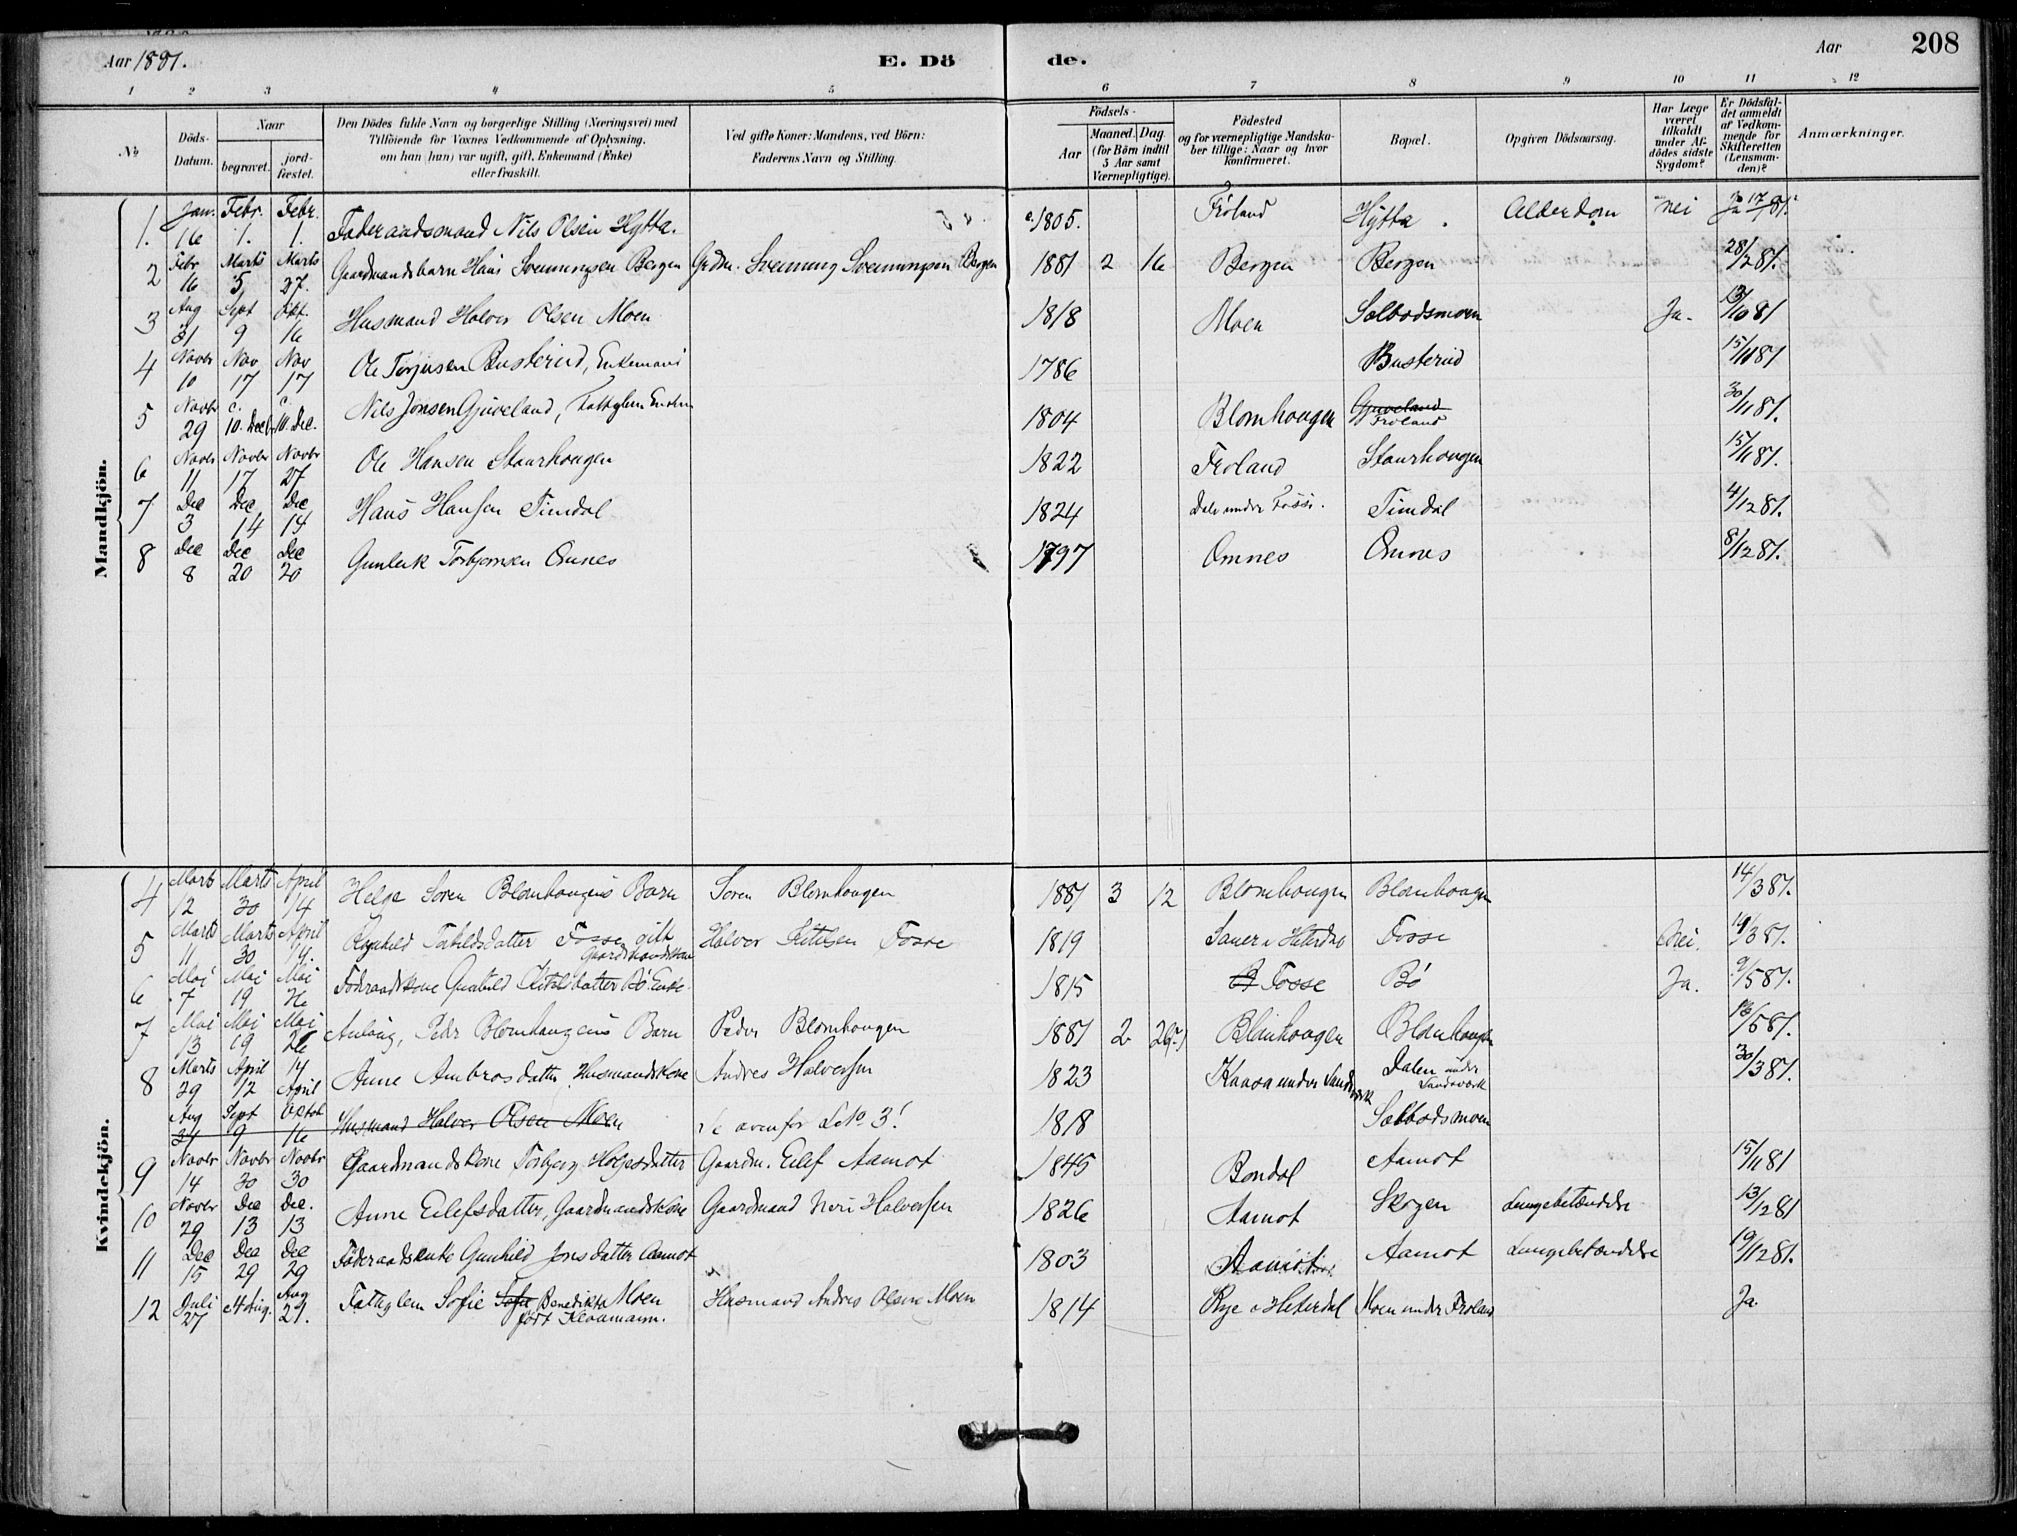 Aar 1881.
E. Dö
de.
Aar
208
1 2 3 4 5 6 7 8 9 10 11 12
No
Döds-Datum.
Naar
begravet.
jord-fæstet.
Den Dödes fulde Navn og borgerlige Stilling (Næringsvei) med
Tilföiende for Voxnes Vedkommende af Oplysning,
om han (hun) var ugift, gift, Enkemand (Enke)
eller fraskilt.
Ved gifte Koner: Mandens, ved Börn:
Faderens Navn og Stilling.
Födsels-
Aar
Maaned. Dag.
(for Börn indtil
5 Aar samt
Værnepligtige).
Födested
og for værnepligtige Mandska-
ber tillige: Naar og hvor
konfirmeret.
Bopæl.
Opgiven Dödsaarsag.
Har Læge
været
tilkaldt
under Af-
dödes sidste
Sygdom?
Er Dödsfal-
det anmeldt
af Vedkom-
mende for
Skifteretten
(Lensman-
den)?
Anmærkninger.
Mandkjön.
1. Jan. 16 Febr. 1. Febr. 1. Föderaadsmand Nils Olsen Hytta. c. 1805. Fröland Hytta Alderdom nei Ja 17/1 81.
2 Febr 16 Marts 5 Marts 27. Gaardmandsbarn Hans Sveinungsen Bergen Grdm. Sveinung Sveinungsen Bergen 1881 2 16 Bergen Bergen 28/2 81.
3 Aug 31 Sept 9 Okt. 16 Husmand Halvor Olsen Moen 1818 Moen Solbodsmoen Ja. 13/10 81
4 Novbr 10 Nov 17 Nov 17 Ole Torjusen Busterud, Enkemand 1786 Busterud 15/11 81
5 Novbr 29 c. 10. Decbr c. 10. Dec. Nils Jonsen Gjuveland, Fattiglem 1804 Blomhougen Gjuveland Froland 30/11 81.
6 Novbr 11 Novbr 17 Novbr 27 Ole Hansen Staurhougen 1822 Froland Staurhougen 15/11 81.
7 Dec 3 Dec 14 Dec 14 Hans Hansen Tindal 1824 Dale under Fosse. Tindal 4/12 81.
8 Dec 8 Dec 20 Dec 20 Gunleik Torbjørnsen Omnes 1797 Omnes Omnes 8/12 81.
Kvindekjön.
4 Marts 12 Marts 30 April 14 Helge Søren Blomhougens Barn Søren Blomhougen 1881 3 12 Blomhougen Blomhougen 14/3 81.
5 Marts 11 Marts 30 April 14. Tarjeldsdatter Fosse gift Gaardmandskone Halvor Kittilsen Fosse 1819 Sauer i Hiterdal Fosse Nei. 14/3 81.
6 Mai 7 Mai 19 Mai 26 Föderaadskone Gunhild Kittilsdatter Bö Enke. 1815 Fosse Bö Ja. 9/5 81.
7 Mai 13 Mai 19 Mai 26 Anlaug, Peder Blomhaugens Barn Peder Blomhougen 1881 2 Blomhougen Blomhougen 16/5 81.
8 Marts 29 April 12 14 April Anne Ambrosdatter Husmandskone Andres Halvorsen 1823 Kaasa under Sandsværk Dalen under Sandsværk 30/3 81.
Aug 31 Sept 9 Oktob 16 Husmand Halvor Olsen Moen Se ovenfor L. No 3! 1818 Solbodsmoen
9 Novbr 14 Novbr 30 Novbr 30 Gaardmandskone Torbjørg Helgesdatter Gaardm. Eilef Aamot 1845 Bondal Aamot 15/11 81
10 Novbr 29 Dec 13 Dec. 13 Anne Eilefsdatter, Gaardmandskone Gaardmand Neri Halvorsen 1826 Aamot Skogen Lungebetændelse 13/12 81
11 Dec 15 Dec 29 Dec 29 Föderaadsenke Gunhild Jonsdatter Aamot 1803 Aamot Aamot Lungebetændelse 19/12 81.
12 Juli 27 4 Aug. Aug 21. Fattiglem Sofie Sofie Benedikta Moen født Klaumann. Husmand Andres Olsen Moen 1814 Rye i Hiterdal Moen under Froland Ja